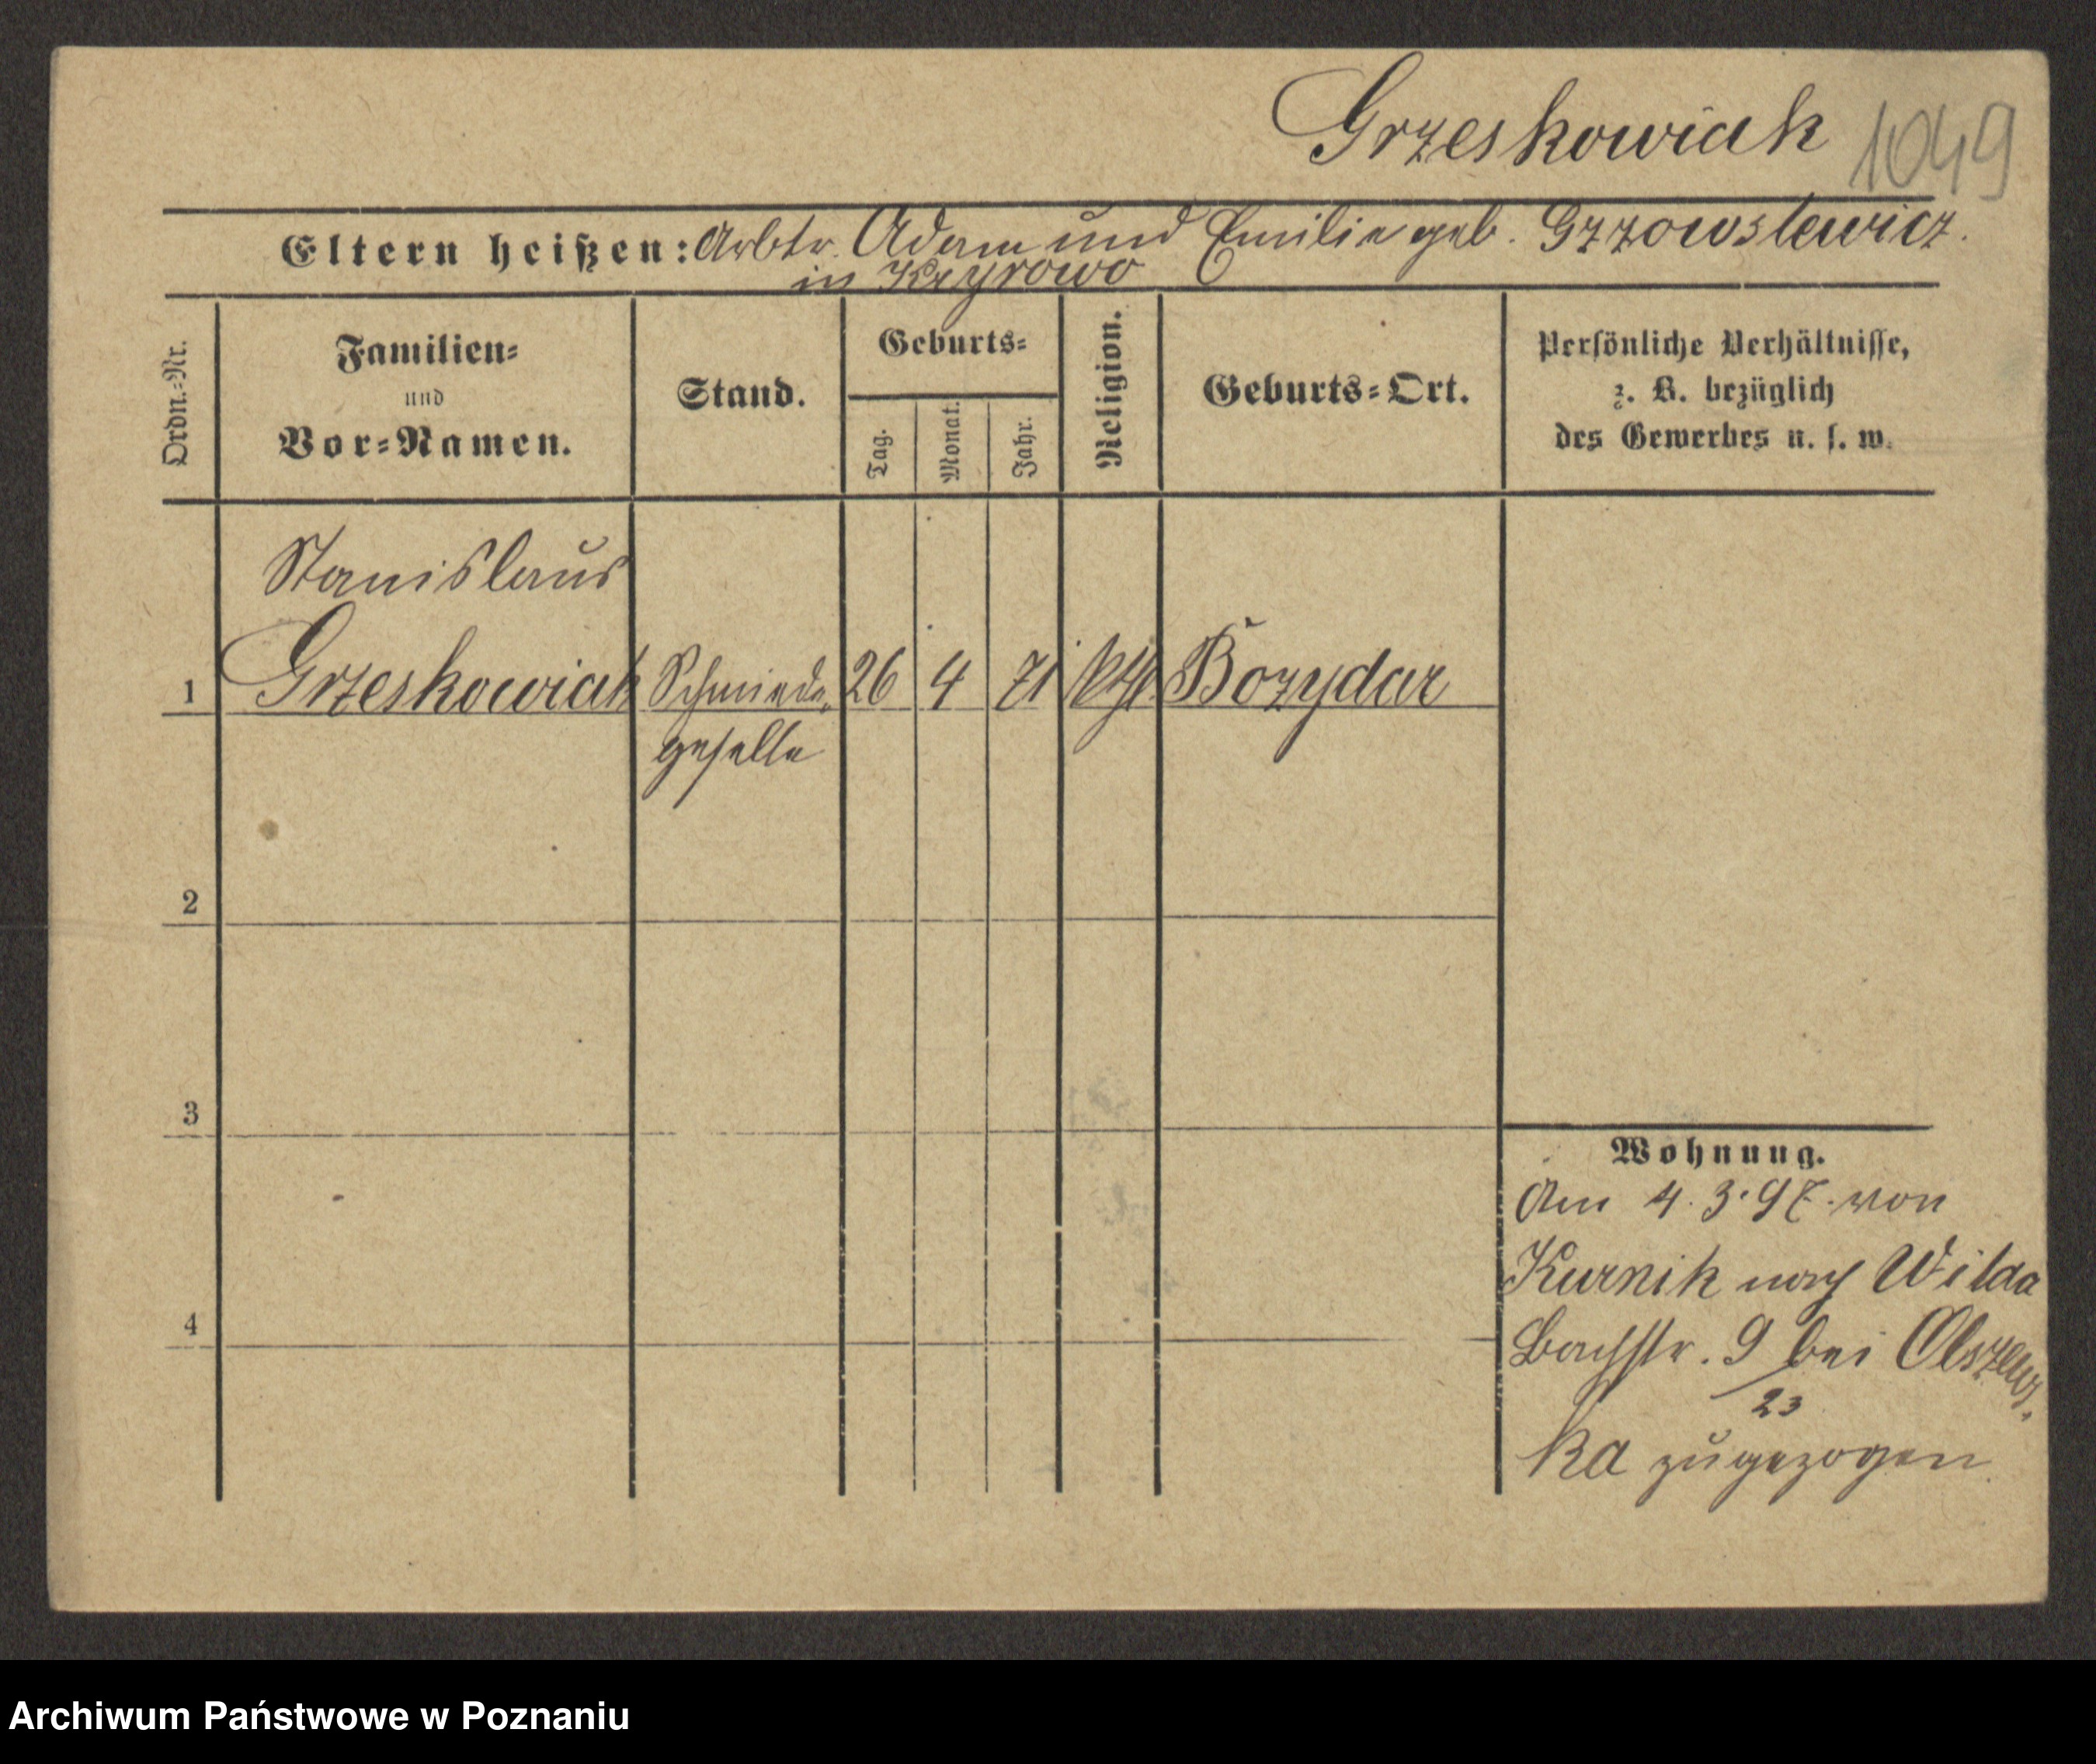 Grzeskowiak 1049
Eltern heißen: Arbtr. Adam und Emilie geb. Grzowslewicz.
in Krzyrowo
Ordn.-Nr.
Familien-
und
Vor-Namen.
Stand.
Geburts-
Tag.
Monat.
Jahr.
Religion.
Geburts-Ort.
Persönliche Verhältnisse,
z. B. bezüglich
des Gewerbes u. s. w.
Stanislaus
1 Grzeskowiak Schmiede- 26 4 71 kth. Bozydar
geselle
2
3
4
Wohnung.
Am 4.3.97. von
Kurnik nach Wilda
Bachstr. 9 bei Olszews-
23
ka zugezogen
Archiwum Państwowe w Poznaniu